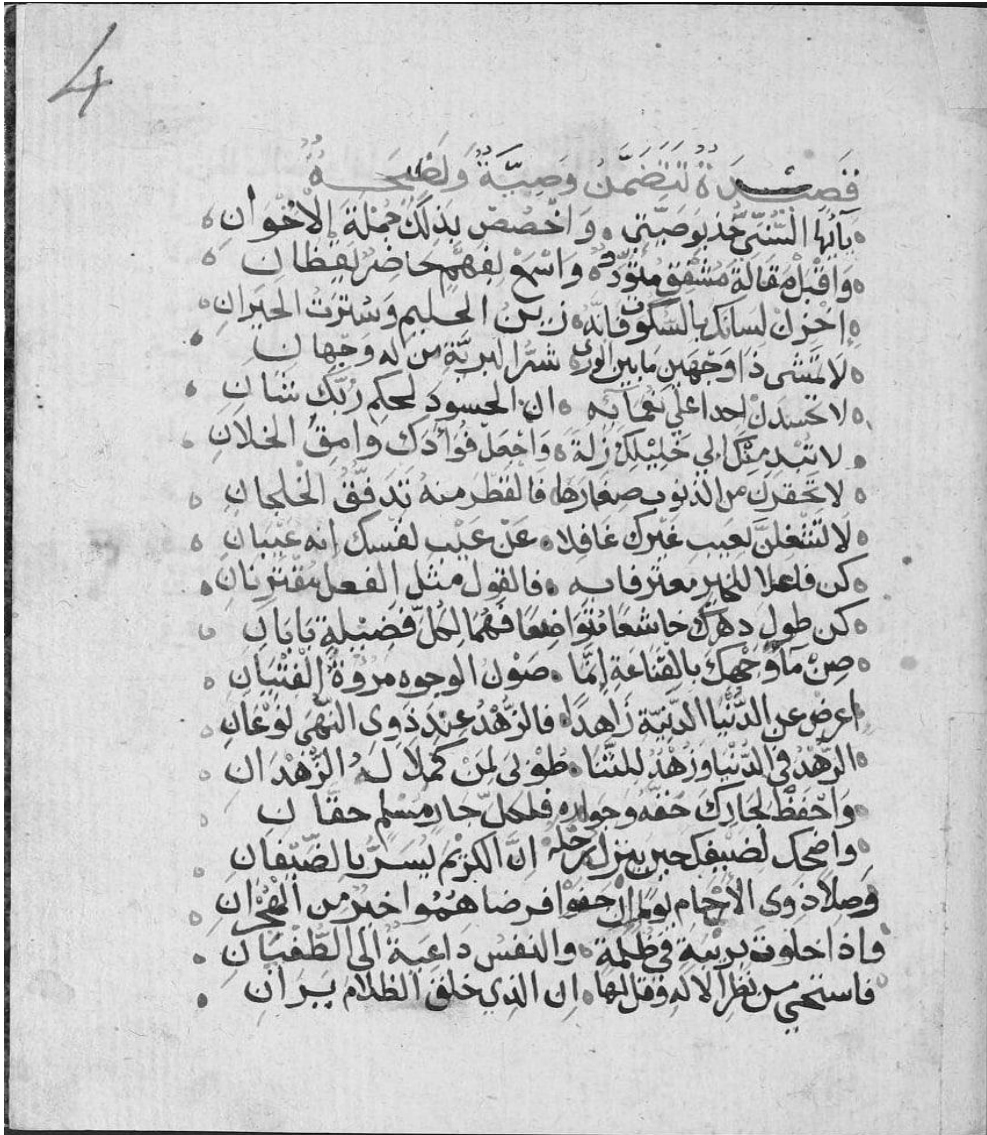 4
قصيدة تتضمن وصية ونصيحة
يأيها السُّنِّيُّ خذ بوصيّتي ه واخصُصْ بذلك جملةَ الإخوان ه
ه واقبل مقالة مشفق متودّد ه واسمع لفهم حاضر يقظان ه
ه إخزن لسانك بالسكوت فانّه ه زين الحليم وسترت الحيران ه
ه لا تمشى ذا وجهين ما بين الورى شرّ البريّة من له وجهان
ه لا تحسدن احدا على نعمآئه ه ان الحسود لحكم ربّك شان
لا تبد منك الى خليلك زلة ه واجعل فؤادك وامق الخلان
ه لا تحقرن من الذنوب صغارها فالقطر منه تدفّق الخلجان ه
ه لا تشغلنّ بعيب غيرك غافلا ه عن عيب نفسك إنه عيبان ه
كن فاعلا للخير معترفا به ه فالقول مثل الفعل مقترنان
ه كن طول دهرك خاشعا متواضعا فهما لكلّ فضيلة بابان ه
ه صن مآء وجهك بالقناعة إنّما ه صون الوجوه مروة الفتيان ه
اعرض عن الدّنيا الدّنيّة زاهدا ه فالزّهد عند ذوى النّهى نوعان ه
ه الزّهد فى الدّنيا وزهد للثّنا ه طوبى لمن كملا له الزّهدان ه
ه واحفظ لجارك حقّه وجواره فلكلّ جار مسلم حقّان ه
ه واضحك لضيفك حين ينزل رحله إنّ الكريم يسرّ بالضّيفان
وصلا ذوى الأرحام لو لم ان جفوا فرضاهموا خير من الهجران ه
فإذا خلوت بريبة فى ظلمة ه والنفس داعية الى الطّغيان ه
فاستحي من نظر الاله وقل لها ه ان الذي خلق الظلام يران ه